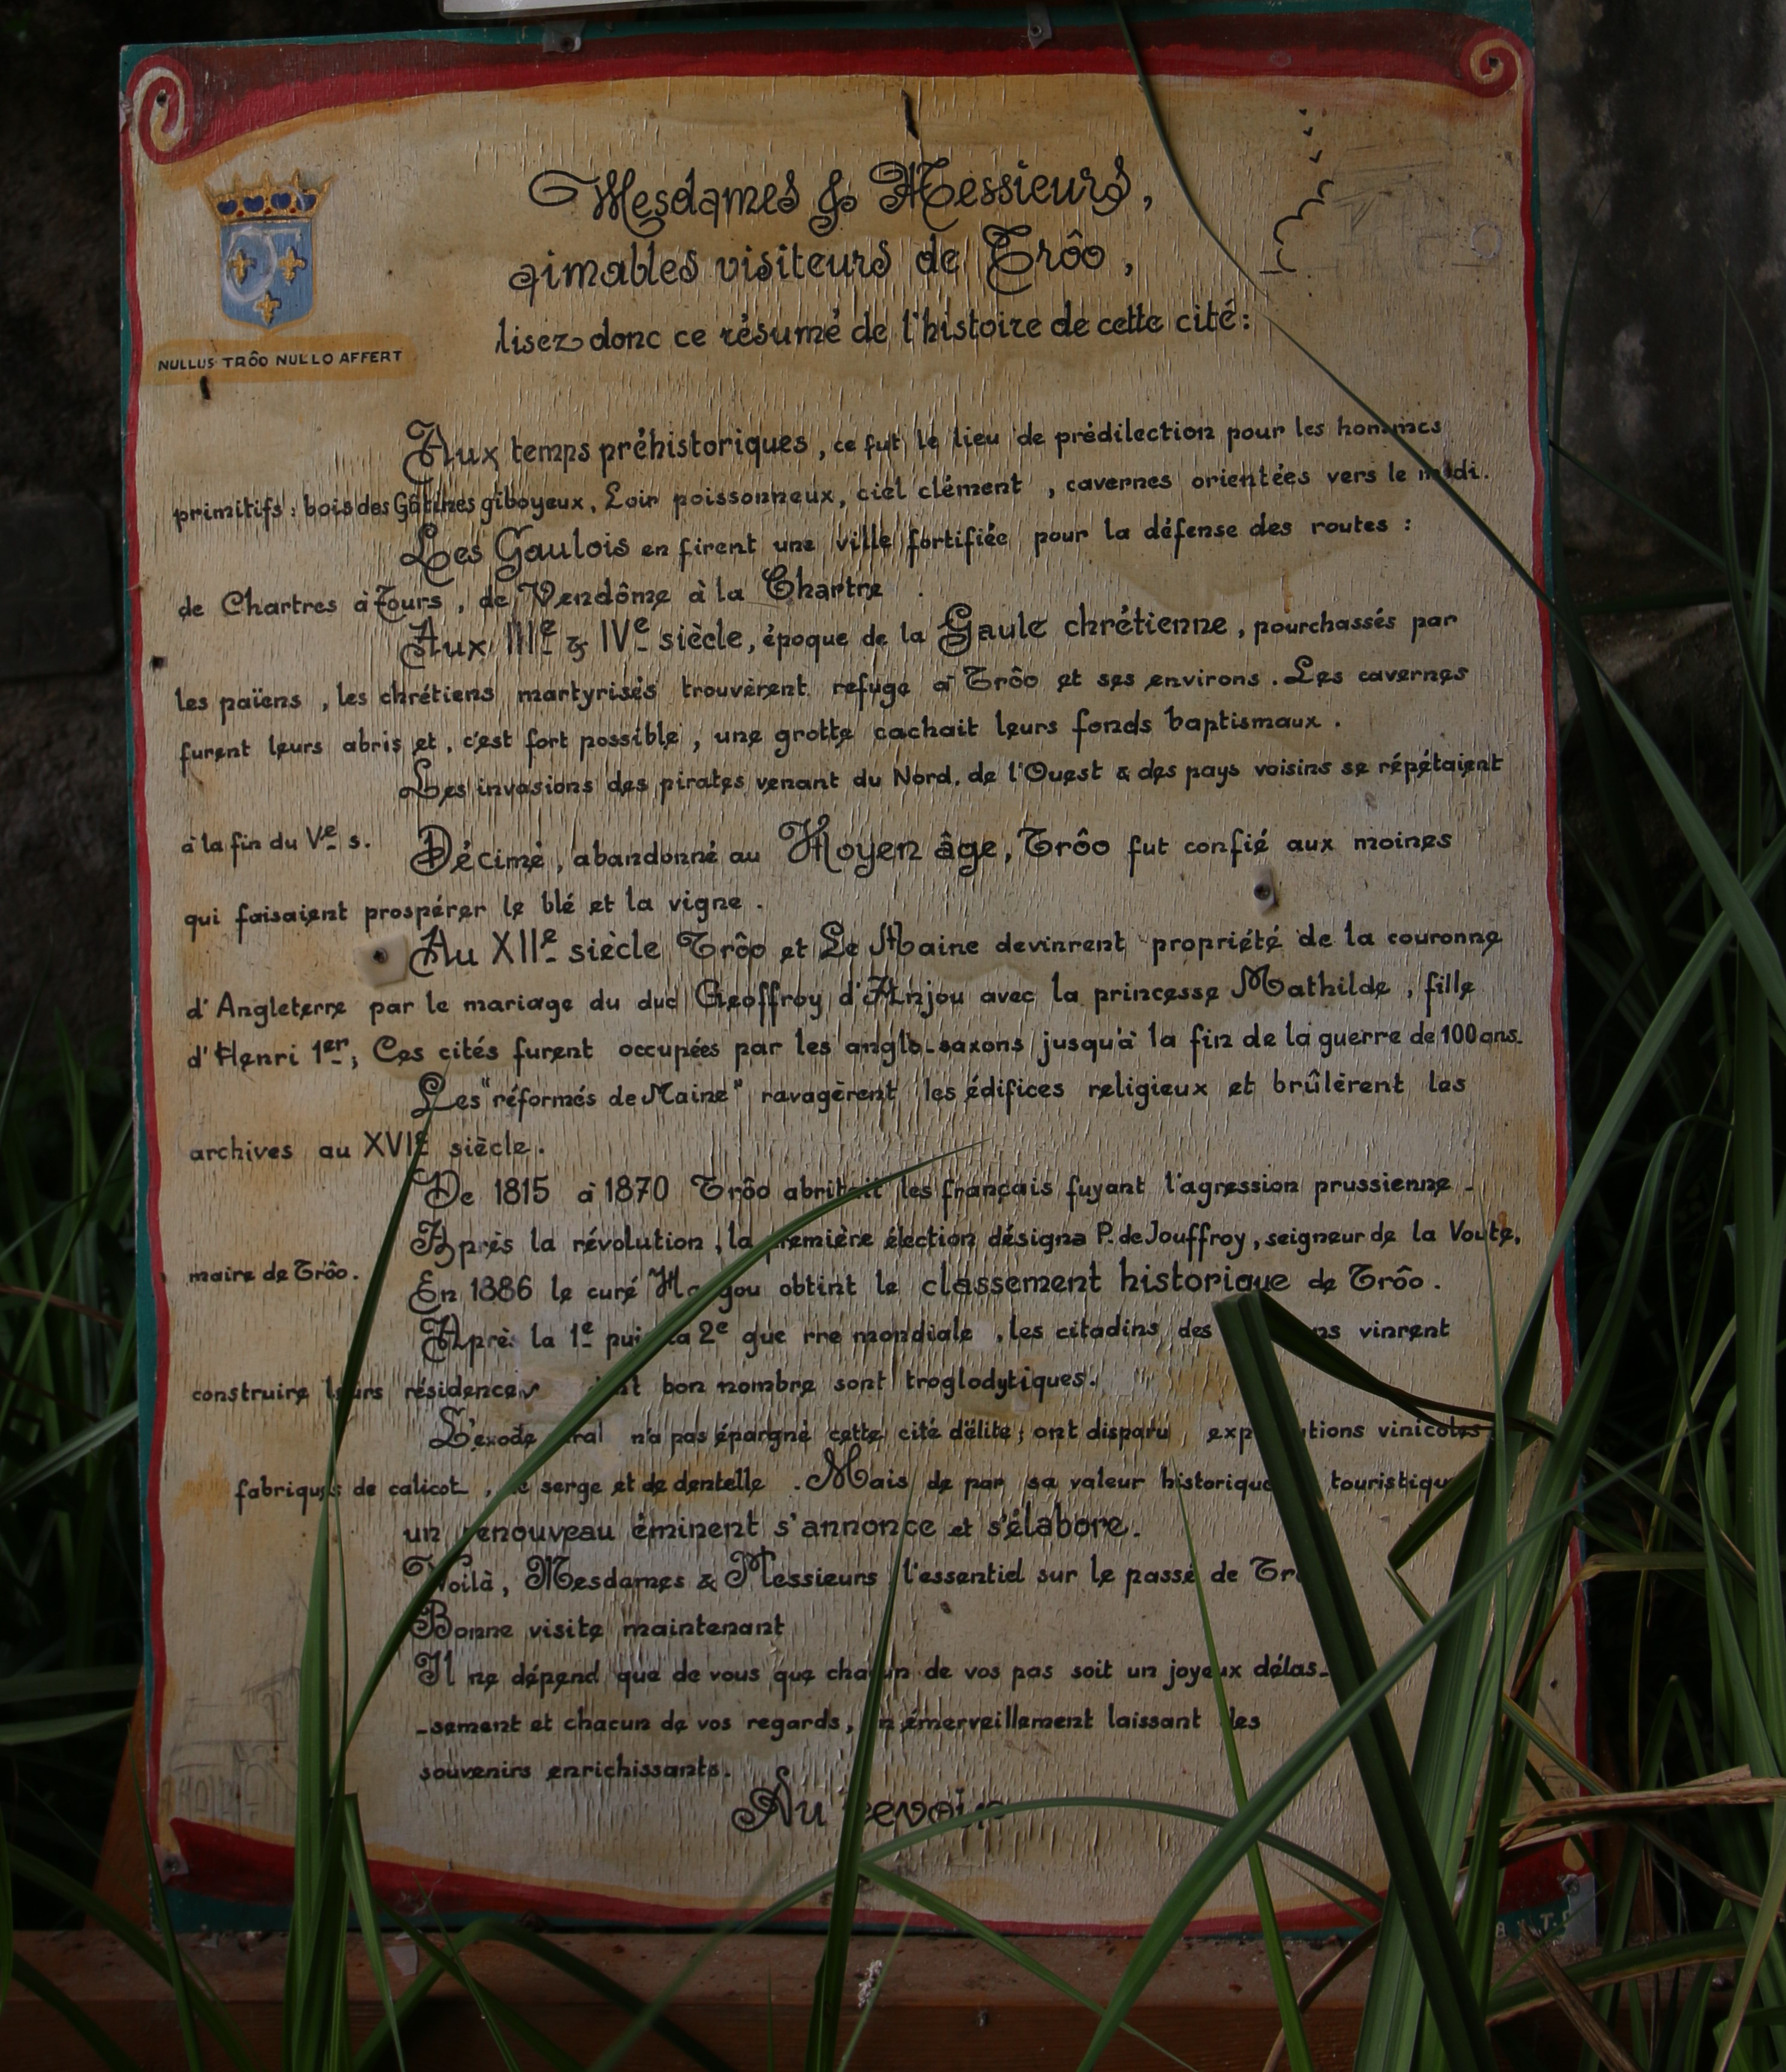 Mesdames & Messieurs,
aimables visiteurs de Trôo,
lisez donc ce résumé de l'histoire de cette cité:
NULLUS TRÔO NULLO AFFERT
Aux temps préhistoriques, ce fut le lieu de prédilection pour les hommes
primitifs: bois des Gâtines giboyeux, Loir poissonneux, ciel clément, cavernes orientées vers le midi.
Les Gaulois en firent une ville fortifiée pour la défense des routes:
de Chartres à Tours, de Vendôme à la Chartre
Aux IIIe & IVe siècle, époque de la Gaule chrétienne, pourchassés par
les païens, les chrétiens martyrisés trouvèrent refuge à Trôo et ses environs. Les cavernes
furent leurs abris et, c'est fort possible, une grotte cachait leurs fonds baptismaux.
Les invasions des pirates venant du Nord, de l'Ouest & des pays voisins se répétaient
à la fin du Ve s.
Décimé, abandonné au Moyen âge, Trôo fut confié aux moines
qui faisaient prospérer le blé et la vigne.
Au XIIe siècle Trôo et Le Maine devinrent propriété de la couronne
d'Angleterre par le mariage du duc Geoffroy d'Anjou avec la princesse Mathilde, fille
d'Henri 1er; Ces cités furent occupées par les anglo-saxons jusqu'à la fin de la guerre de 100 ans.
Les "réformés de Maine" ravagèrent les édifices religieux et brûlèrent les
archives au XVIe siècle.
De 1815 à 1870 Trôo abritait les français fuyant l'agression prussienne -
Après la révolution, la première élection désigna P. de Jouffroy, seigneur de la Voute,
maire de Trôo.
En 1886 le curé obtint le classement historique de Trôo.
Après la 1e puis la 2e gue rre mondiale, les citadins des vinrent
construire leurs résidences dont bon nombre sont troglodytiques.
L'exode rural n'a pas épargné cette cité d'élite; ont disparu exploitations vinicoles,
fabriques de calicot, de serge et de dentelle. Mais de par sa valeur historique touristique
un renouveau éminent s'annonce et s'élabore.
Voilà, Mesdames & Messieurs l'essentiel sur le passé de Trôo
Bonne visite maintenant
Il ne dépend que de vous que chacun de vos pas soit un joyeux délas-
-sement et chacun de vos regards, un émerveillement laissant des
souvenirs enrichissants.
Au revoir